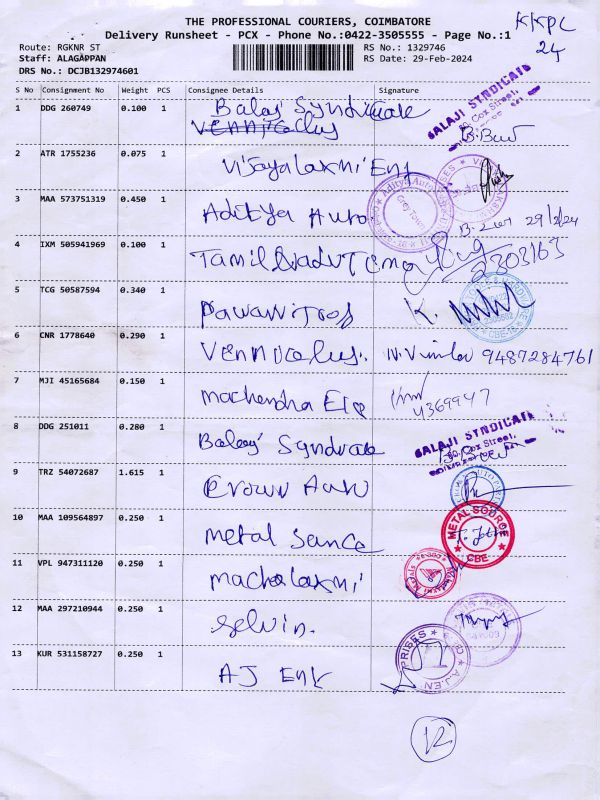 THE PROFESSIONAL COURIERS, COIMBATORE
KKPL
24
Delivery Runsheet - PCX - Phone No.:0422-3505555 - Page No.:1
Route: RGKNR ST
RS No.: 1329746
Staff: ALAGAPPAN
RS Date: 29-Feb-2024
DRS No.: DCJB132974601
S No Consignment No Weight PCS Consignee Details Signature
1 DDG 260749 0.100 1 Balaji Syndicate
BALAJI SYNDICATE
Cox Street,
2 ATR 1755236 0.075 1 Vijayalaxmi Ent
3 MAA 573751319 0.450 1 Aditya Auto 29/2/24
4 IXM 505941969 0.100 1 Tamil Nadu 2303163
5 TCG 50587594 0.340 1 Pawan K.
6 CNR 1778640 0.290 1 N. Vimla 9487284761
7 MJI 45165684 0.150 1 Machendra Ele 4369947
8 DDG 251011 0.280 1 Balaji Syndicate
BALAJI SYNDICATE
Cox Street,
9 TRZ 54072687 1.615 1 Crown Auto
10 MAA 109564897 0.250 1 Metal Source
METAL SOURCE
CBE
11 VPL 947311120 0.250 1 Machalaxmi
12 MAA 297210944 0.250 1 Selvin.
13 KUR 531158727 0.250 1 AJ Ent
A.J.EN PRISES
12